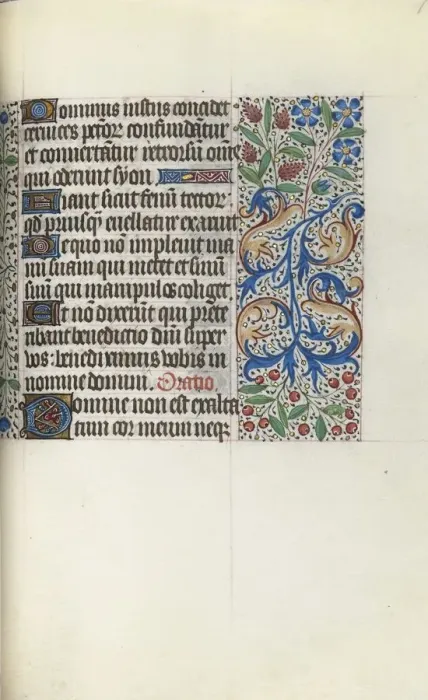 Dominus iustus concidet
cervices pctoꝝ confundātur
et convertātur retrorsū om̄e
qui oderunt syon.
Fiant sicut fenū tectoꝝ
qd priusq̄ evellatur exaruit
De quo nō implevit ma
nū suam qui metet et sinū
suū qui manipulos colliget.
Et nō dixerūt qui prete
ribant benedictio dn̄i super
vos: benediximus vobis in
nomine domini. Oratio.
Domine non est exalta
tum cor meum neqꝫ